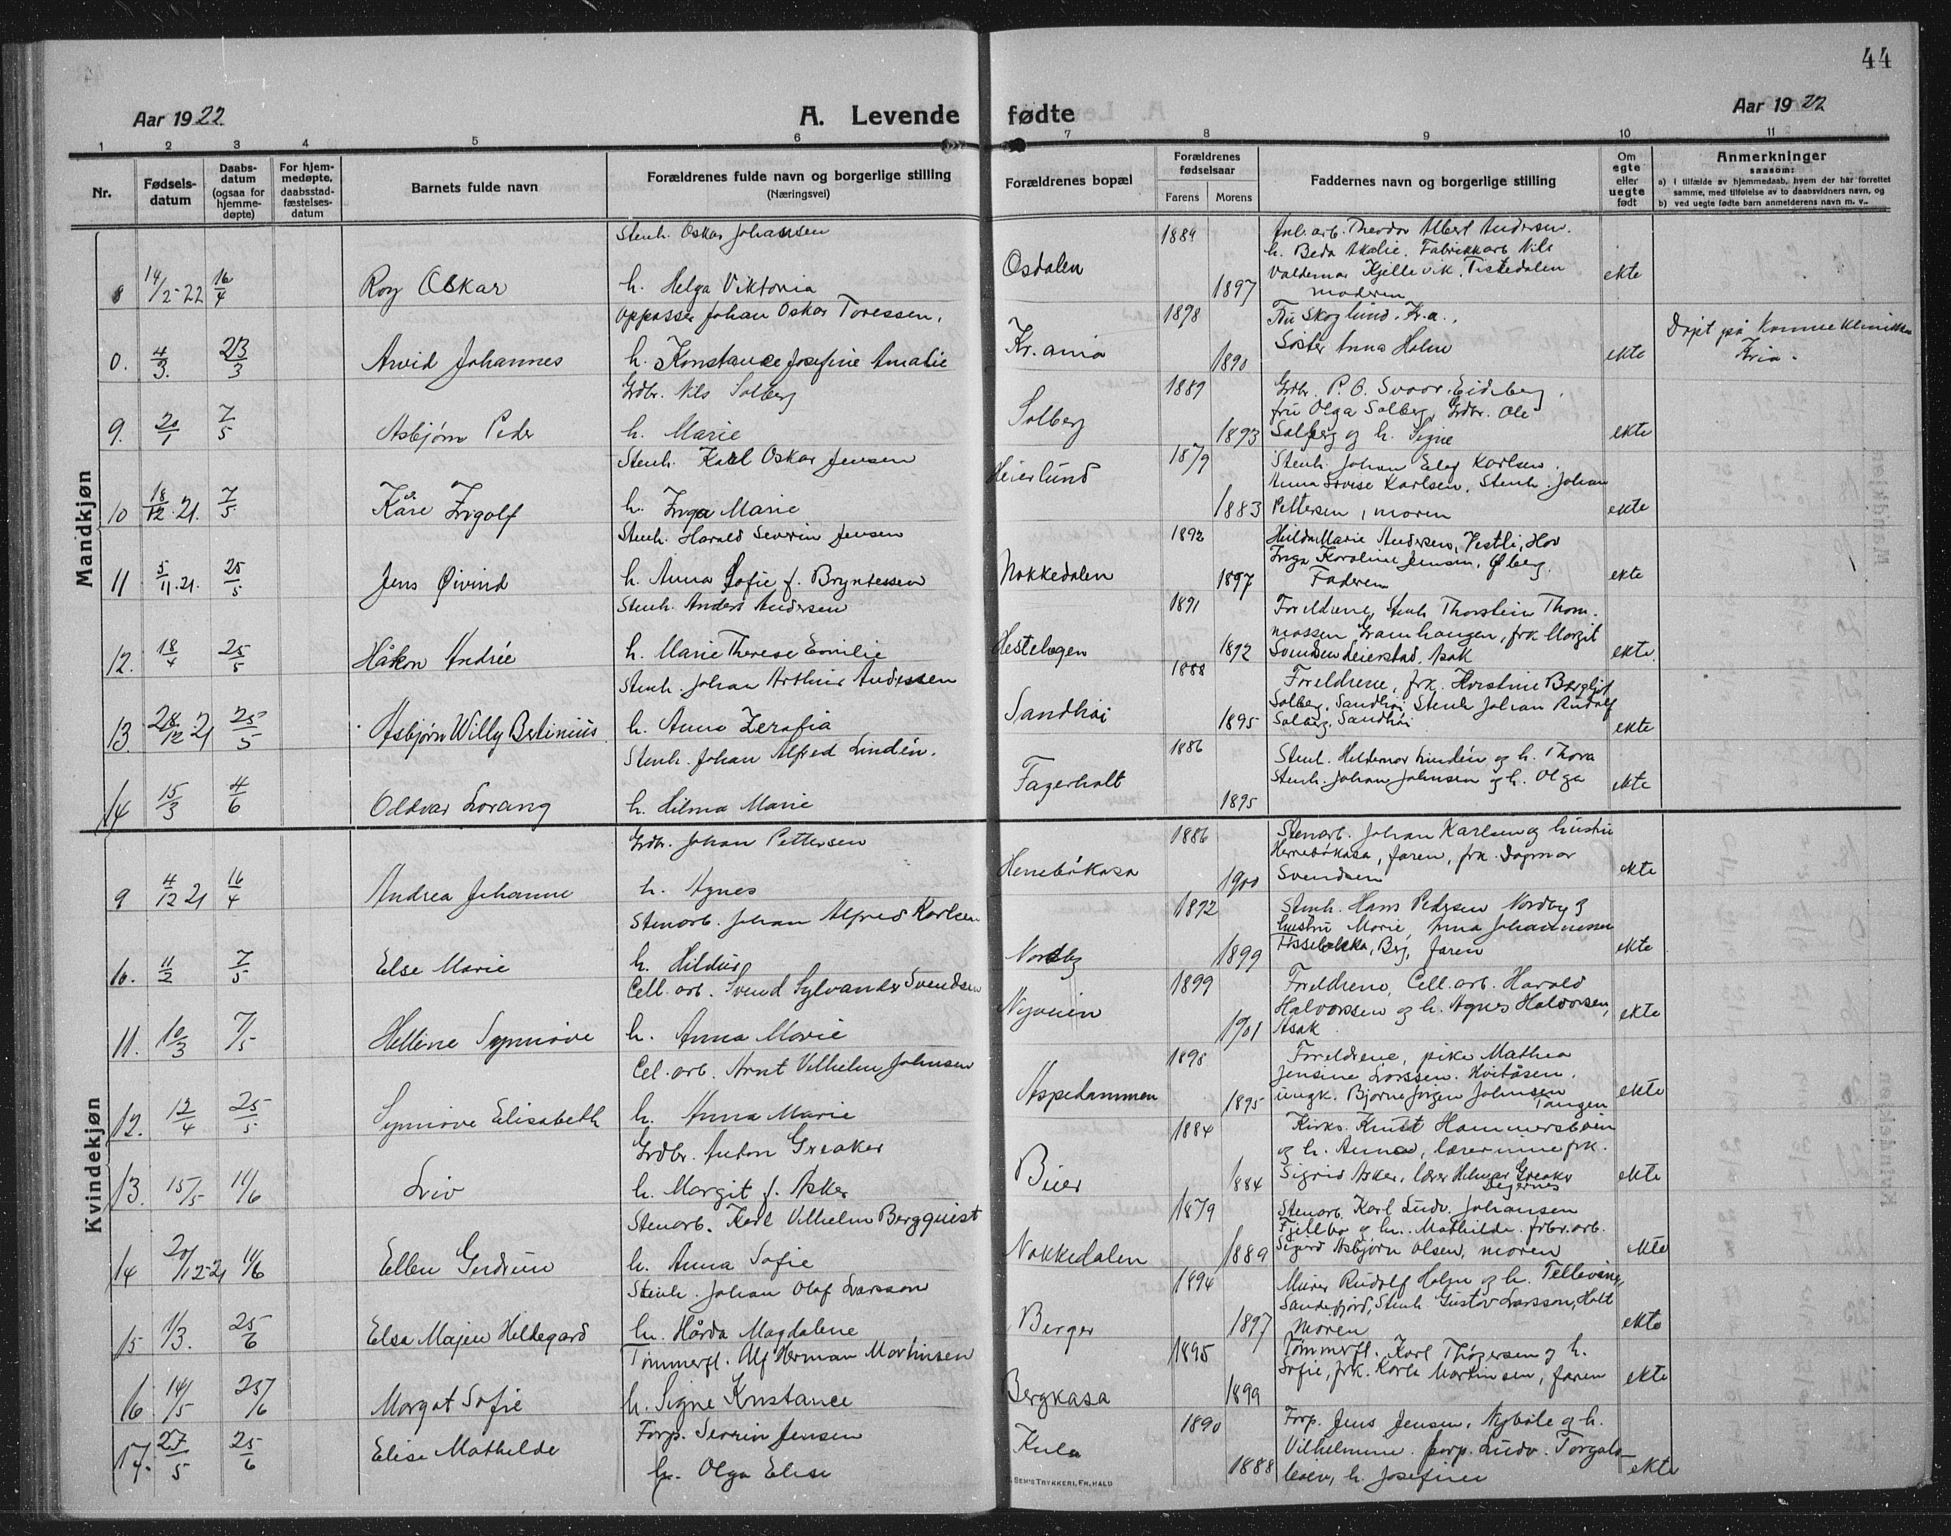 44
Aar 1922
A. Levende fødte
Aar 1922
1 2 3 4 5 6 7 8 9 10 11
Nr.
Fødsels-
datum
Daabs-
datum
(ogsaa for
hjemme-
døpte)
For hjem-
medøpte,
daabsstad-
fæstelses-
datum
Barnets fulde navn
Forældrenes fulde navn og borgerlige stilling
(Næringsvei)
Forældrenes bopæl
Forældrenes
fødselsaar
Farens Morens
Faddernes navn og borgerlige stilling
Om
egte
eller
uegte
født
Anmerkninger
saasom:
a) i tilfælde av hjemmedaab, hvem der har forrettet
samme, med tilføielse av to daabsvidners navn, og
b) ved uegte fødte barn anmelderens navn m. v..
Mandkjøn
Stenh. Oskar Johansen 1889 Theodor Albert Andersen.
h. Beda Amalie. Fabrikkarb Nils
8 14/2-22 16/4 Roy Oskar h. Helga Viktoria Osdalen 1897 Valdemar Kjellevik. Tistedalen ekte
moderen
Oppasser Johan Oskar Toressen. 1898 Fru Skoglund. Kr.a.,
0. 4/3. 23/3 Arvid Johannes h. Konstance Josefine Amalie Kr.ania 1890 Søster Anna Holm ekte Døpt på Kvinneklinikken
Kria.
Grdbr. Nils Solberg 1889 Grdbr. P. O. Svaar. Eideberg.
fru Olga Solberg, Grdbr. Ole
9. 20/1 7/5 Asbjørn Peder h. Marie Solberg 1893 Solberg og h. Signe ekte
Stenh. Karl Oskar Jensen 1879 Stenh. Johan Karlsen.
Anna Lovise Karlsen, Stenh. Johan
10 18/12.21. 7/5 Kåre Ingolf h. Inga Marie Heierlund 1883 Pettersen, moren ekte
Stenh. Harald Severin Jensen 1892 Marie Andersen, Vestli, Hov
Inga Karoline Jensen, Øberg.
11 5/11.21. 25/5 Jens Øivind h. Anna Sofie f. Bryntessen Nokkedalen 1897 Faderen ekte
Stenh. Anders Andersen 1891 Foreldrene, Stenh Thorstein Thom-
massen Gramhaugen, frk Margit
12. 18/4 25/5 Håkon Andrée h. Marie Therese Emilie Hestehagen 1892 Svendsen Leierstad, Asak ekte.
Stenh. Johan Arthur Andersen 1888 Foreldrene, frk. Bergljot
Solberg, Sandhøi Stenh Johan Rudolf
13. 28/12 21 25/5 Asbjørn Willy Bertinius h. Anna Zerafia Sandhøi 1895 Solberg, Sandhøi ekte
Stenh. Johan Alfred Lindén. 1886 Stenh. Hildemar Lindén og h. Thora
Stenh. Johan Johnsen og h. Olga
14 15/3 4/6 Oddvar Lorang h. Hilma Marie Fagerholt 1895 ekte
Kvindekjøn
Grdbr. Johan Pettersen 1886 Stenarb. Johan Karlsen og hustru
Hennebökasa, faren, frk. Dagmar
9 4/12 21 16/4 Andrea Johanne h. Agnes Hennebökasa 1900 Svendsen ekte
Stenarb. Johan Alfred Karlsen 1892 Stenh. Hans Pedersen Nordby og
hustru Marie, Anna Johannessen
10. 11/2 7/5 Else Marie h. Hildur Nordby 1899 Tisseløkka, Berg, faren ekte
Cell. arb. Svend Sylvander Svendsen 1899 Foreldrene, Cell. arb. Harald
Halvorsen og h. Agnes Halvorsen,
11. 10/3 7/5 Hellene Synnøve h. Anna Marie Nyveien 1901 Asak ekte
Cel. arb. Arnt Vilhelm Johnsen 1898 Foreldrene, pike Mathea
Jensine Larssen. Hvitåsen.
12. 12/4 25/5 Synnøve Elisabeth h. Anna Marie Aspedammen 1895 ungk. Bjarne Jørgen Johnsen ekte
Tangen
Grdbr. Anton Greaker 1884 Kirks. Knut Hammersbøen
og h. Anna, lærerinne frk.
13. 15/5 11/6 Liv h. Margit f. Asker Buer 1884 Sigrid Asker, lærer Hilmar Greaker ekte
Degernes
Stenarb. Karl Vilhelm Bergquist 1879 Stenarb. Karl Ludv. Johansen
Fjellbo og h. Mathilde. frbr. arb.
14 20/12-21 11/6 Ellen Gudrun h. Anna Sofie Nokkedalen 1889 Sigurd Asbjørn Olsen, moren ekte
Stenh. Johan Olof Larsson 1894 Murer Rudolf Holm og h.
Sandefjord, Stenh Gustov Larsson, Holt
15 11/3. 25/6 Elsa Majen Hildegard h. Hårda Magdalene Berger 1897 moren ekte
Tømmerfl. Alf Herman Martinsen 1895 Tømmerfl. Karl Thøgersen og h.
Sofie, frk. Karla Martinsen, faren
16 14/5 25/6 Margot Sofie h. Signe Konstance Bergkasa 1899 ekte
Forp. Severin Jensen 1890 Forp. Jens Jensen, Nybøle og h.
Vilhelmine. forp. Ludv.
17. 27/5 25/6 Elise Mathilde h. Olga Elise Kula 1888 h. Josefine ekte
SEM'S TRYKKERI, FR.HALD